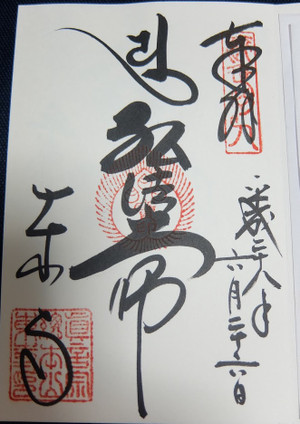 奉拝
平成二十八年
六月二十六日
弘法大師
東寺